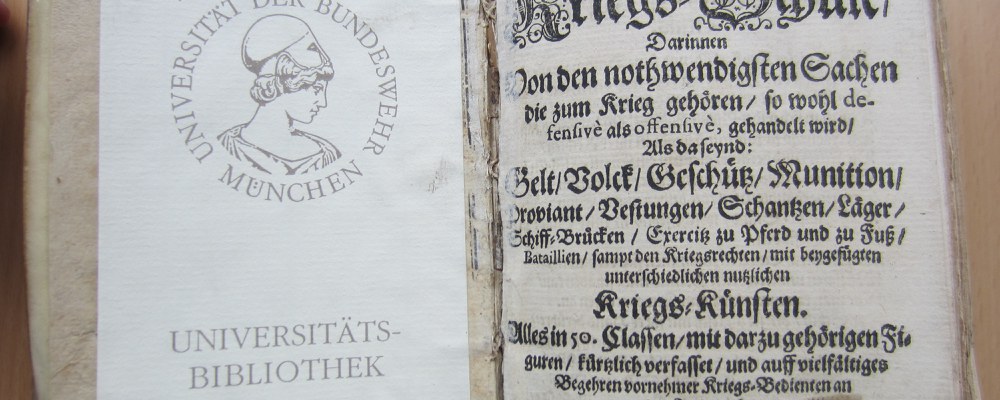 UNIVERSITÄT DER BUNDESWEHR
MÜNCHEN
UNIVERSITÄTS-
BIBLIOTHEK
Kriegs-Schul/
Darinnen
Von den nothwendigsten Sachen
die zum Krieg gehören/ so wohl de-
fensivè als offensivè, gehandelt wird/
Als da seynd:
Gelt/ Volck/ Geschütz/ Munition/
Proviant/ Vestungen/ Schantzen/ Läger/
Schiff-Brücken/ Exercitz zu Pferd und zu Fuß/
Bataillien/ sampt den Kriegsrechten/ mit beygefügten
unterschiedlichen nutzlichen
Kriegs-Künsten.
Alles in 50. Classen/ mit darzu gehörigen Fi-
guren/ kürtzlich verfasset/ und auff vielfältiges
Begehren vornehmer Kriegs-Bedienten an